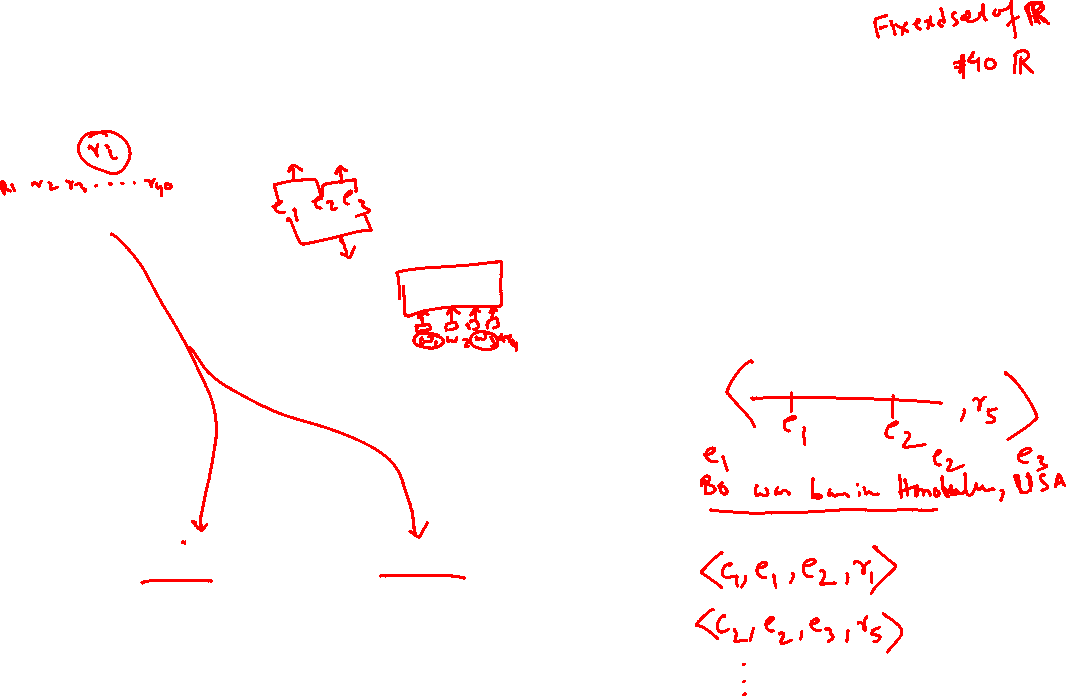 Fixed set of ℝ
#40 ℝ
r2
R1 r2 r3 ..... r40
e1 e2 e3
w1 w2 w3 w4
< e1 e2 , r5 >
e1 e2 e3
BO was born in Honolulu, USA
<c1, e1, e2, r1>
<c2, e2, e3, r5>
⋮